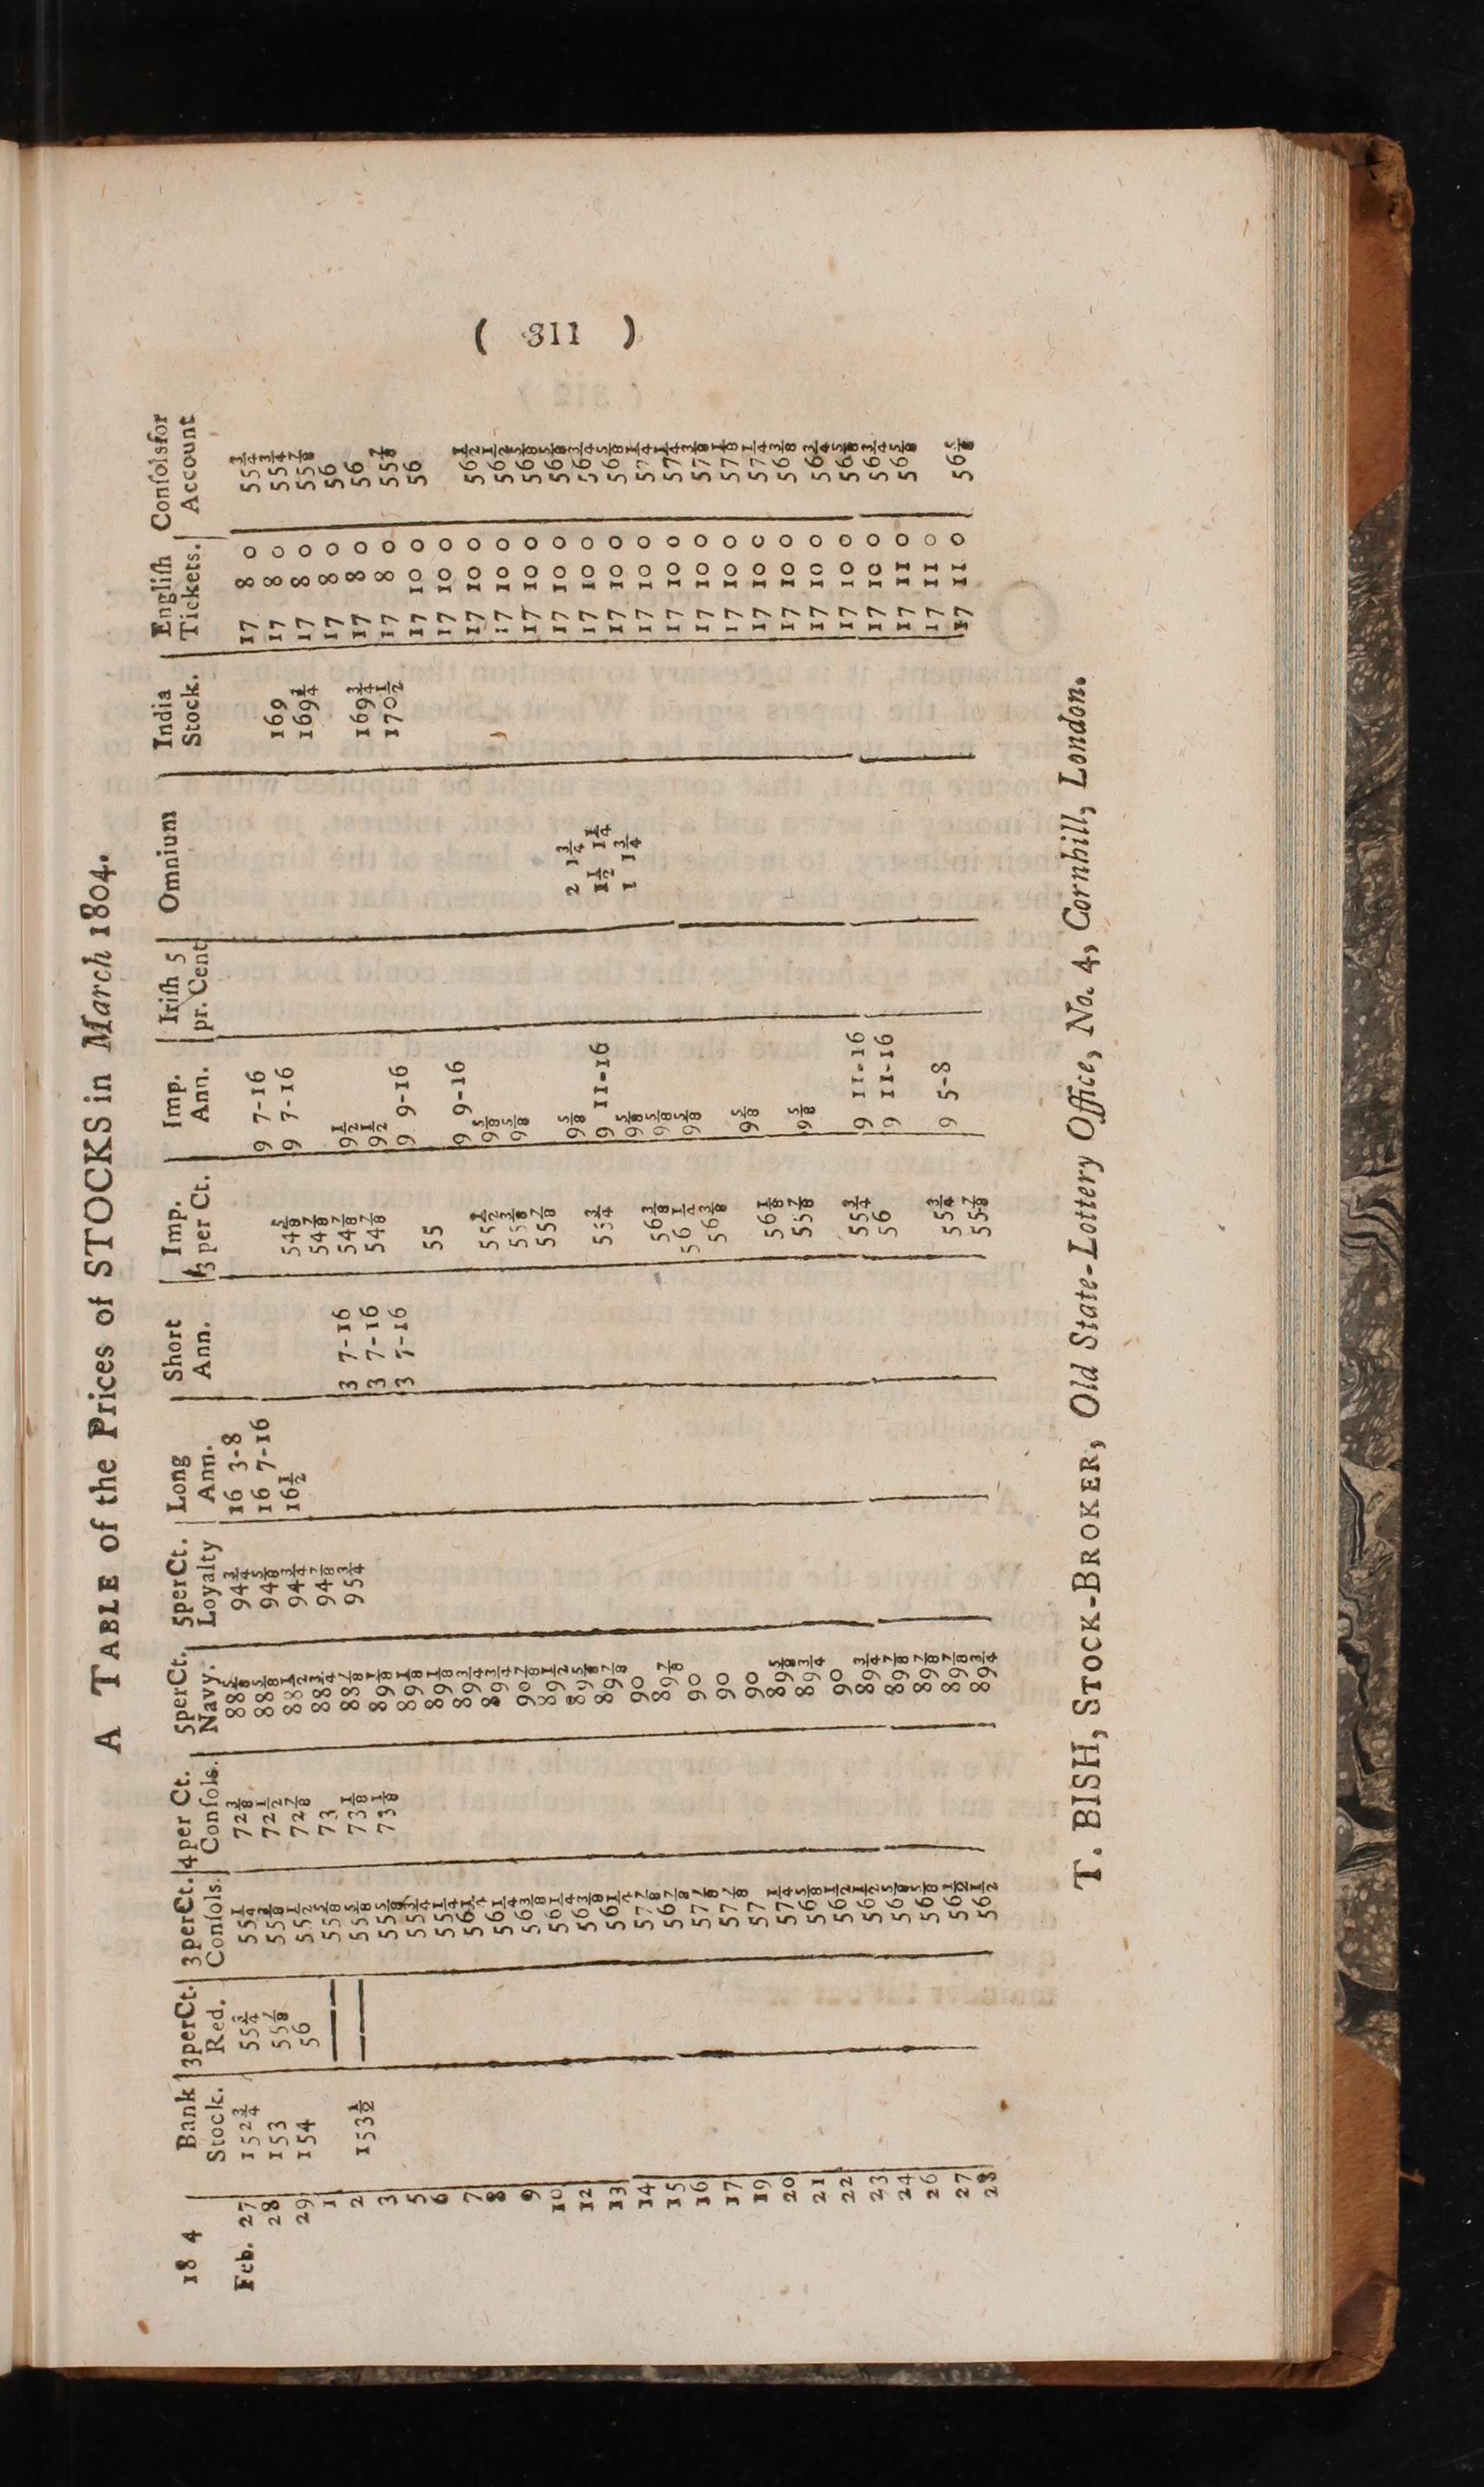 ( 311 )
A TABLE of the Prices of STOCKS in March 1804.
18 4 Bank Stock. 3perCt. Red. 3perCt. Conſols. 4per Ct. Conſols. 5perCt. Navy. 5perCt. Loyalty Long Ann. Short Ann. Imp. 3 per Ct. Imp. Ann. Iriſh 5 pr. Cent Omnium India Stock. Engliſh Tickets. Conſolsfor Account
Feb. 27 152¾ 55¾ 55¼ 72⅜ 88⅝ 94¾ 16 3-8
28 153 55⅞ 55⅜ 72½ 88⅝ 94⅝ 16 7-16 9 7-16 17 8 0 55¾
29 154 56 55½ 72⅞ 88½ 94¾ 16½ 54⅝ 9 7-16 169 17 8 0 55¾
1 —— 55⅝ 73 88¾ 94⅞ 54⅞ 169¼ 17 8 0 55⅞
2 153½ —— 55⅝ 73⅛ 88⅞ 95¾ 3 7-16 54⅞ 9½ 17 8 0 56
3 55⅝ 73⅛ 89⅛ 3 7-16 54⅞ 9½ 169¾ 17 8 0 56
5 55¾ 89⅛ 3 7-16 9 9-16 170½ 17 8 0 55⅞
6 55¼ 89⅛ 55 17 10 0 56
7 56¼ 89¾ 9 9-16 17 10 0
8 56¼ 89¾ 55½ 9⅝ 17 10 0 56½
9 56⅜ 90⅞ 55⅜ 9⅝ 17 10 0 56½
10 56¼ 89½ 55⅞ 17 10 0 56⅝
12 56⅜ 89⅝ 9⅝ 2 1¾ 17 10 0 56⅝
13 56¼ 89⅞ 55¾ 9 11-16 1½ 1¼ 17 10 0 56¾
14 57⅞ 90 9⅝ 1 1¾ 17 10 0 56⅝
15 56⅞ 89⅞ 56⅜ 9⅝ 17 10 0 57¼
16 57⅞ 90 56¼ 9⅝ 17 10 0 57¼
17 57⅞ 90 56⅜ 17 10 0 57⅜
19 57 90 9⅝ 17 10 0 57⅛
20 57¼ 89⅝ 56⅛ 17 10 0 57¼
21 56⅝ 89¾ 55⅞ 9⅝ 17 10 0 56⅜
22 56½ 90 17 10 0 56¾
23 56½ 89¾ 55¾ 9 11-16 17 10 0 56⅝
24 56⅝ 89⅞ 56 9 11-16 17 10 0 56¾
26 56⅝ 89⅞ 17 11 0 56⅝
27 56½ 89⅞ 55¾ 9 5-8 17 11 0
28 56½ 89¾ 55⅞ 17 11 0 56⅝
T. BISH, STOCK-BROKER, Old State-Lottery Office, No. 4, Cornhill, London.